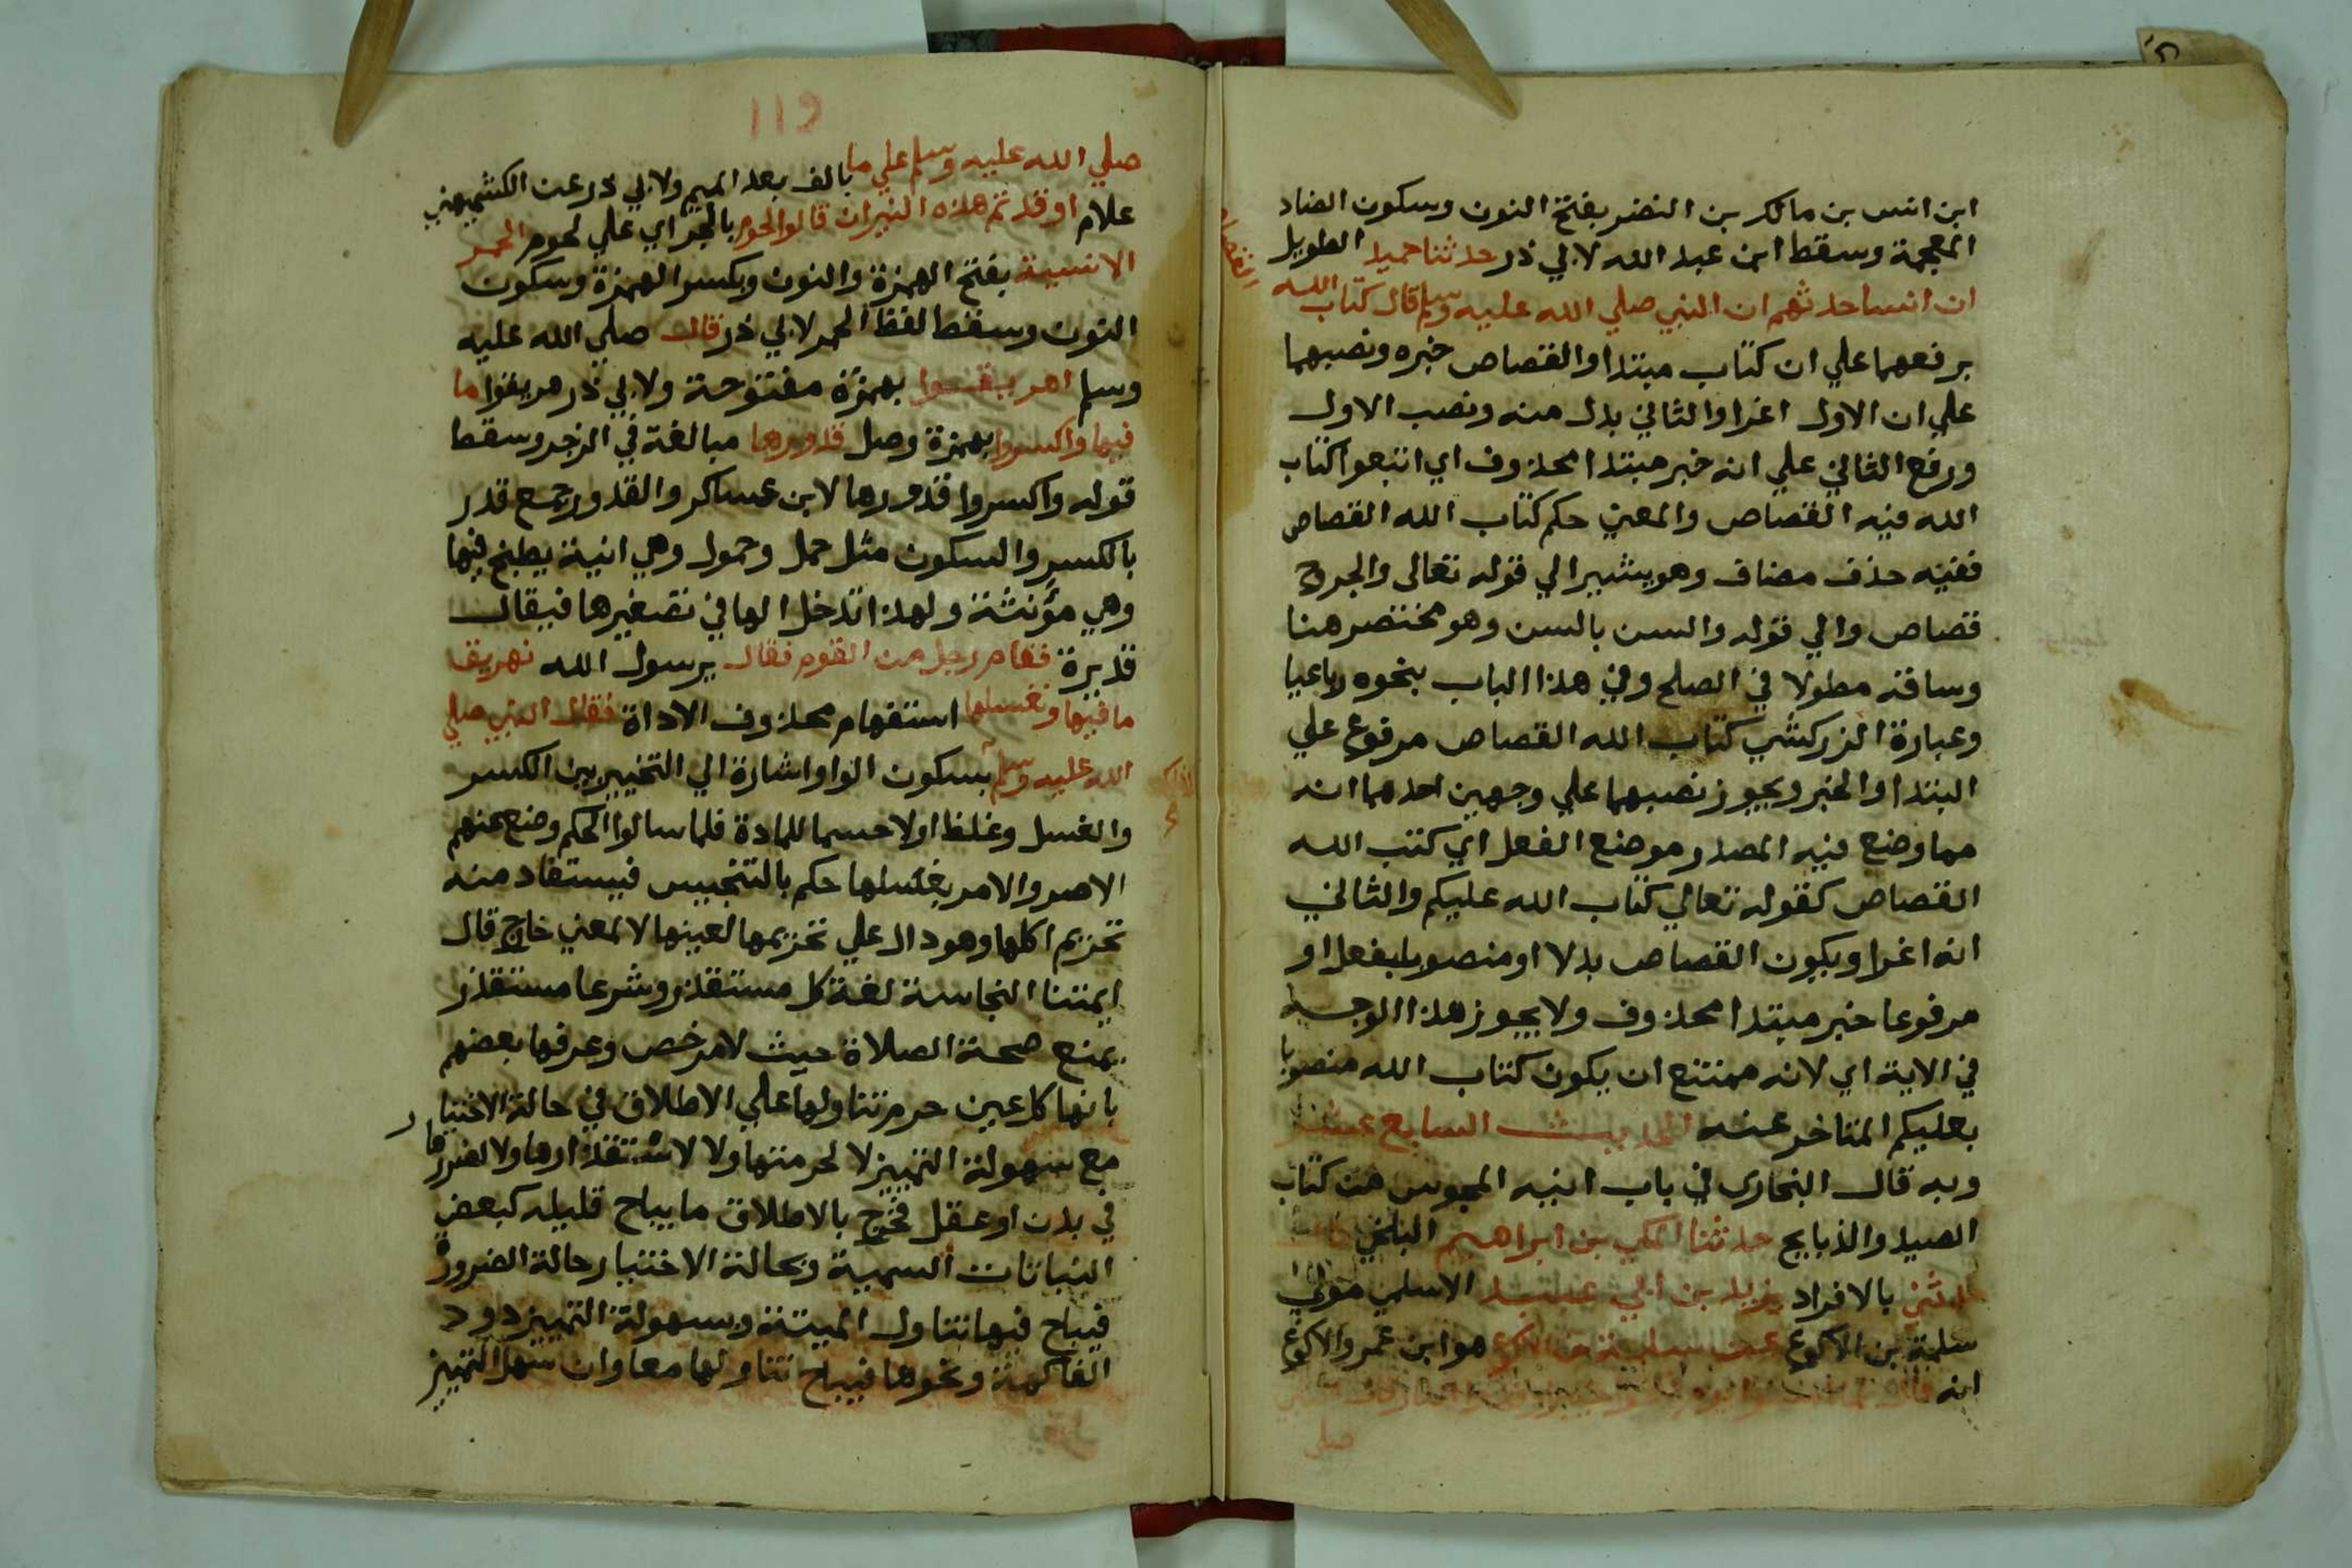 ابن انس بن مالك بن النضر بفتح النون وسكون الضاد
المعجمة وسقط ابن عبد الله لابي ذر حدثنا حميد الطويل
ان انسا حدثهم ان النبي صلي الله عليه وسلم قال كتاب الله
القصاص
برفعهما علي ان كتاب مبتدا والقصاص خبره ونصبهما
علي ان الاول اغرا والثاني بدل منه ونصب الاول
ورفع الثاني علي انه خبر مبتدا محذوف اي اتبعوا كتاب
الله فيه القصاص والمعني حكم كتاب الله القصاص
ففيه حذف مضاف وهو يشير الي قوله تعالى والجروح
قصاص والي قوله والسن بالسن وهو مختصر هنا
وساقه مطولا في الصلح وفي هذا الباب بنحوه رباعيا
وعبارة الزركشي كتاب الله القصاص مرفوع علي
البتدا والخبر ويجوز نصبهما علي وجهين احدهما انه
مما وضع فيه المصدر موضع الفعل اي كتب الله
القصاص كقوله تعالي كتاب الله عليكم والثاني
انه اغرا ويكون القصاص بدلا او منصوبا بفعل او
مرفوعا خبر مبتدا محذوف ولا يجوز هذا الوجه
في الاية اي لانه ممتنع ان يكون كتاب الله منصوبا
بعليكم المتاخر عنه الحديث السابع عشر
وبه قال البخاري في باب انيه المجوس من كتاب
الصيد والذبايح حدثنا المكي بن ابراهيم البلخي قال
حدثني بالافراد يزيد بن ابي عبيد الاسلمي مولي
سلمة بن الاكوع عن سلمة بن الاكوع هو ابن عمر والاكوع
انه قال لما
صلي
119
صلي الله عليه وسلم علي ما بالف بعد الميم ولابي ذر عن الكشميهني
علام اوقدتم هذه النيران قالوا لحوم بالجر اي علي لحوم الحمر
الانسية بفتح الهمزة والنون وبكسر الهمزة وسكون
النون وسقط لفظ الحمر لابي ذر قال صلي الله عليه
وسلم اهريقوا بهمزة مفتوحة ولابي ذر هريقوا ما
فيها واكسروا بهمزة وصل قدورها مبالغة في الزجر وسقط
قوله واكسروا قدورها لابن عساكر والقدور جمع قدر
بالكسر والسكون مثل حمل وحمول وهي انية يطبخ فيها
وهي مؤنثة ولهذا تدخل الها في تصغيرها فيقال
قديرة فقام رجل من القوم فقال يرسول الله نهريق
ما فيها ونغسلها استفهام محذوف الاداة فقال النبي صلي
الله عليه وسلم بسكون الواو اشارة الي التخيير بين الكسر
والغسل وغلظ اولا حسما للمادة فلما سالوا الحكم وضع عنهم
الاصر والامر بغسلها حكم بالتنجيس فيستفاد منه
تحريم اكلها وهو دال علي تحريمها لعينها لا لمعني خارج قال
ايمتنا النجاسة لغة كل مستقذر وشرعا مستقذر
يمنع صحة الصلاة حيث لا مرخص وعرفها بعضهم
بانها كل عين حرم تناولها علي الاطلاق في حالة الاختيار
مع سهولة التمييز لا لحرمتها ولا لاستقذارها ولا لضررها
في بدن او عقل فخرج بالاطلاق ما يباح قليله كبعض
النباتات السمية وبحالة الاختيار حالة الضرورة
فيباح فيها تناول الميتة وبسهولة التمييز دود
الفاكهة ونحوها فيباح تناولها معا وان سهل التمييز